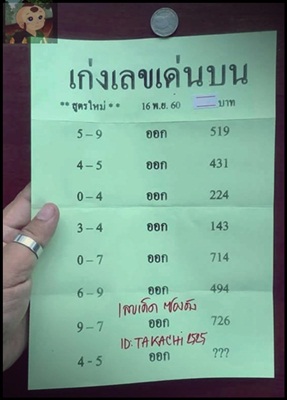 เก่งเลขเด่นบน
** สูตรใหม่ ** 16 พ.ย. 60 บาท
5 – 9 ออก 519
4 – 5 ออก 431
0 – 4 ออก 224
3 – 4 ออก 143
0 – 7 ออก 714
6 – 9 ออก 494
เลขเด็ด ซองดัง
9 – 7 ออก 726
ID: TAKACHI2525
4 – 5 ออก ???